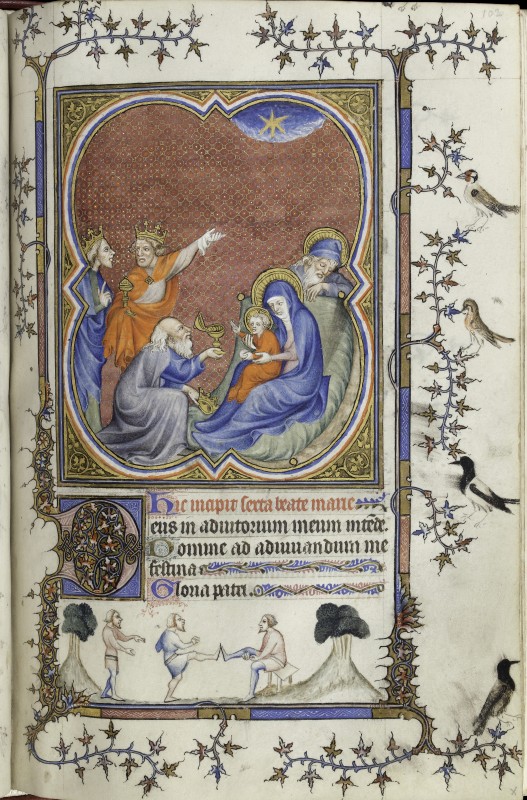 Hic incipit sexta beate marie
Deus in adiutorium meum intēde.
Domine ad adiuuandum me
festina
Gloria patri.